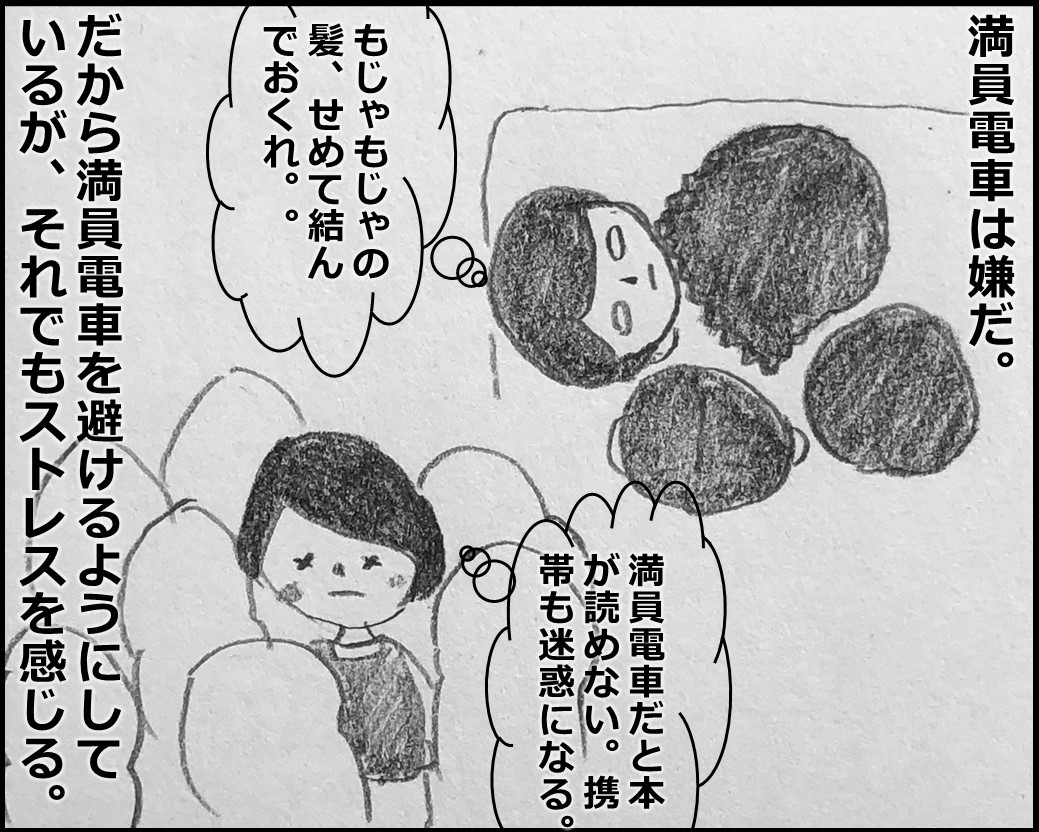 満員電車は嫌だ。
もじゃもじゃの
髪、せめて結ん
でおくれ。。
満員電車だと本
が読めない。携
帯も迷惑になる。
だから満員電車を避けるようにして
いるが、それでもストレスを感じる。